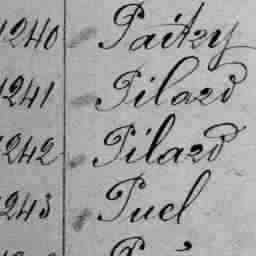 1240 Paitzy
1241 Pilard
1242 Pilard
1243 Puel